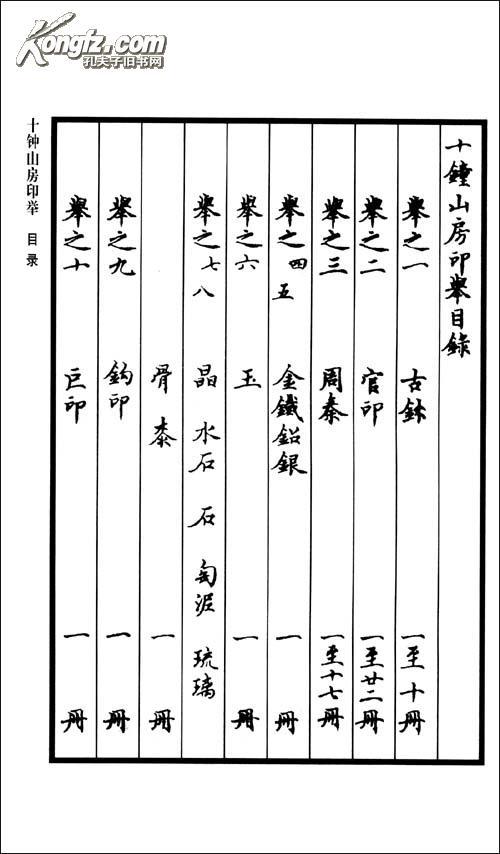 Kongfz.com
孔夫子旧书网
十钟山房印举 目录
十鐘山房印舉目錄
舉之一 古鉨 一至十冊
舉之二 官印 一至廿二冊
舉之三 周秦 一至十七冊
舉之四五 金鐵鉛銀 一冊
舉之六 玉 一冊
舉之七八 晶 水石 石 匋泥 琉璃
骨 桼 一冊
舉之九 鉤印 一冊
舉之十 巨印 一冊